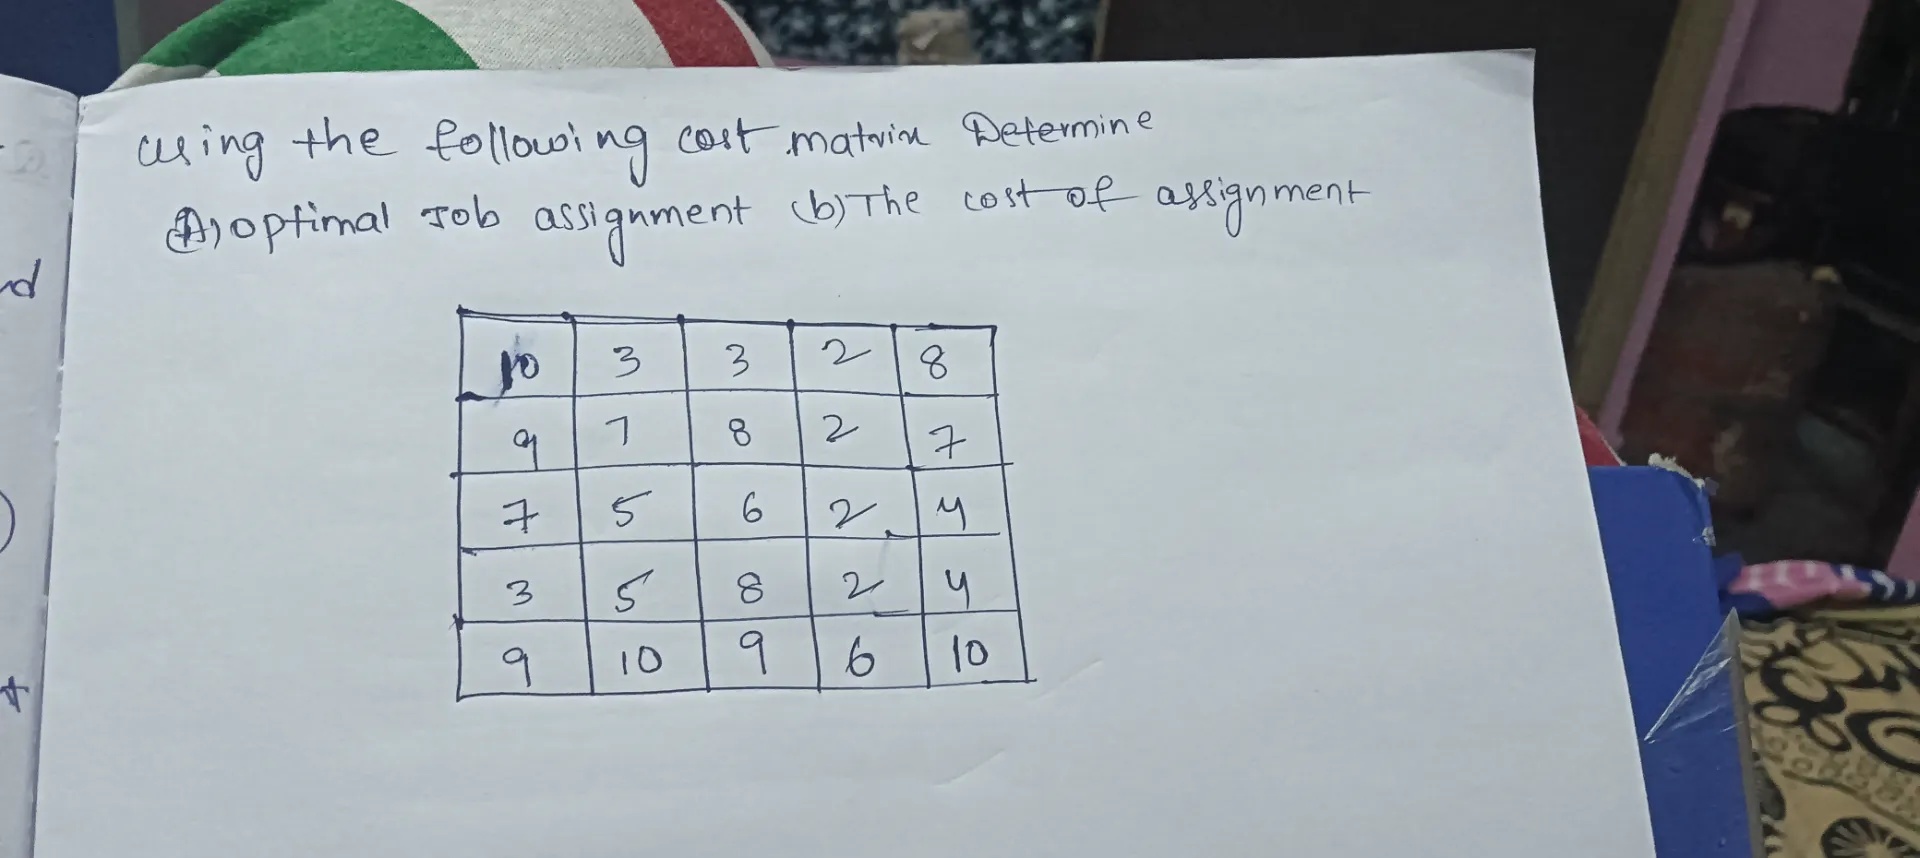 using the following cost matrix Determine
(A) optimal Job assignment (b) The cost of assignment
10 3 3 2 8
9 7 8 2 7
7 5 6 2 4
3 5 8 2 4
9 10 9 6 10